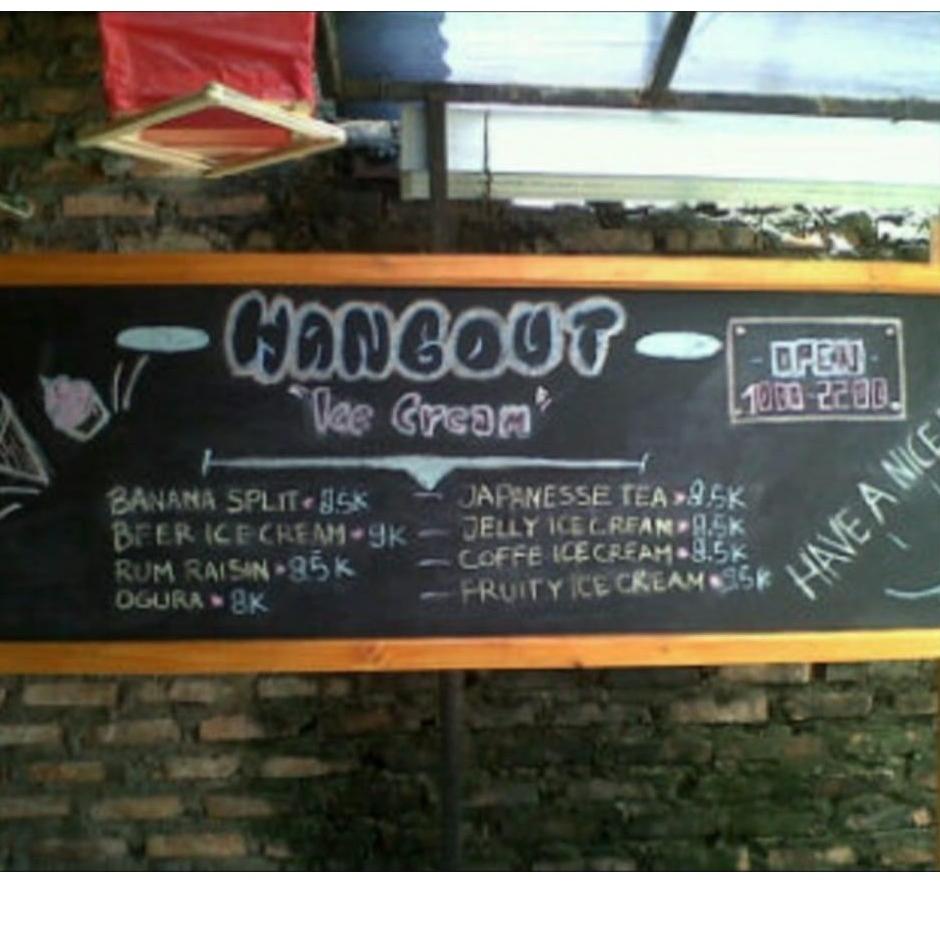 HANGOUT
"Ice Cream"
OPEN
1000-2200
BANANA SPLIT • 8.5K
BEER ICE CREAM • 9K
RUM RAISIN • 8.5K
OGURA • 8K
— JAPANESSE TEA • 8.5K
— JELLY ICE CREAM • 8.5K
— COFFE ICE CREAM • 8.5K
— FRUITY ICE CREAM •
HAVE A NICE